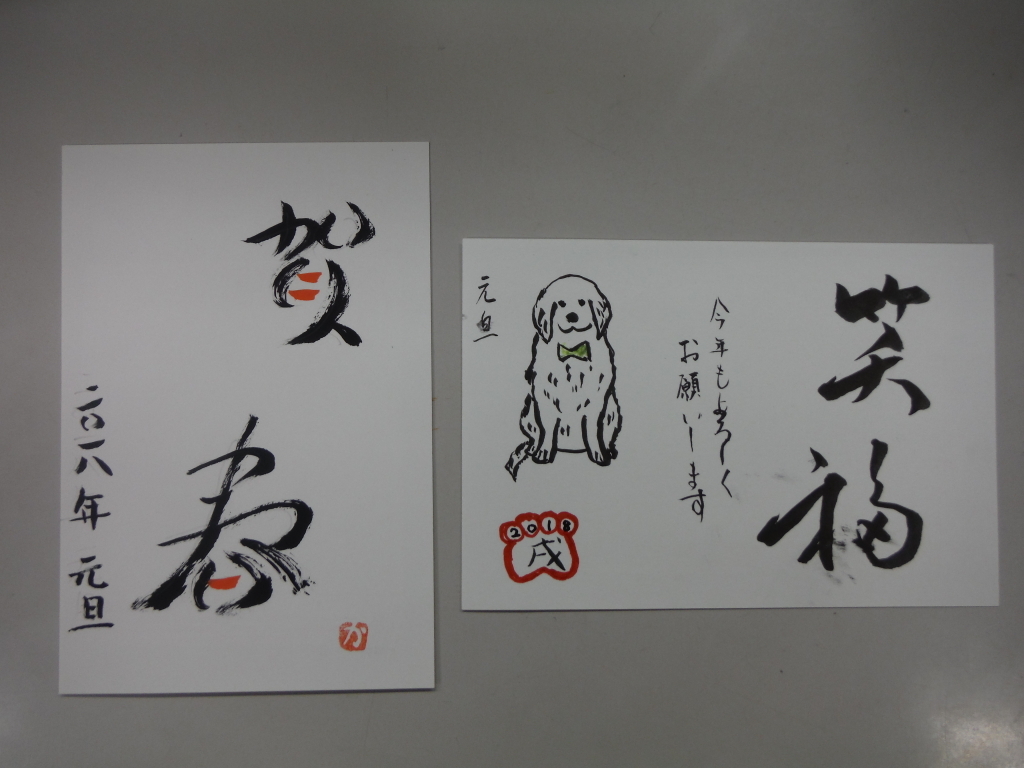 賀春
二〇一八年 元旦
か
笑福
今年もよろしく
お願いします
元旦
2018
戌